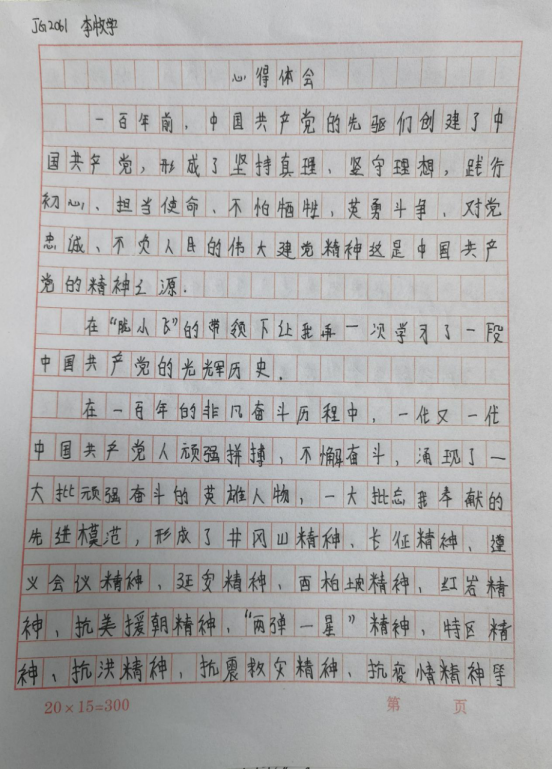 JG2061 李牧宇
心得体会
一百年前，中国共产党的先驱们创建了中
国共产党，形成了坚持真理、坚守理想，践行
初心、担当使命、不怕牺牲，英勇斗争、对党
忠诚、不负人民的伟大建党精神这是中国共产
党的精神之源.
在“脑小飞”的带领下让我再一次学习了一段
中国共产党的光辉历史.
在一百年的非凡奋斗历程中，一代又一代
中国共产党人顽强拼搏、不懈奋斗，涌现了一
大批顽强奋斗的英雄人物，一大批忘我奉献的
先进模范，形成了井冈山精神、长征精神、遵
义会议精神、延安精神、西柏坡精神、红岩精
神、抗美援朝精神、“两弹一星”精神、特区精
神、抗洪精神、抗震救灾精神、抗疫情精神等
20×15=300
第 页